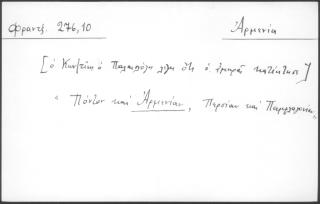 Φραντζ. 276,10
Ἀρμενία
[ὁ Κων/τῖνος ὁ Παλαιολόγος λέγει ὅτι ὁ ἐμηρᾶς κατέκτησε]
“Πόντον καὶ Ἀρμενίαν, Περσίαν καὶ Παμφλαγονίαν